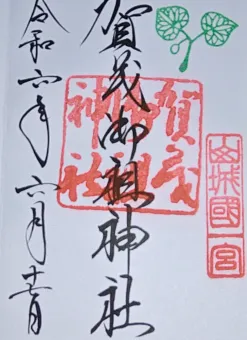 山城國一宮
賀茂御祖神社
賀茂
御祖
神社
令和六年六月